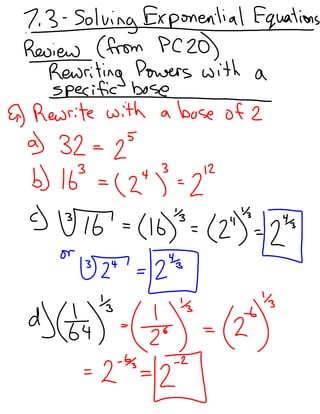 7.3 - Solving Exponential Equations
Review (from PC20)
Rewriting Powers with a
specific base
Ex) Rewrite with a base of 2
a) 32 = 2⁵
b) 16³ = (2⁴)³ = 2¹²
c) ∛16 = (16)^⅓ = (2⁴)^⅓ = 2^(4/3)
or ∛2⁴ = 2^(4/3)
d) (1/64)^⅓ = (1/2⁶)^⅓ = (2⁻⁶)^⅓
= 2^(-6/3) = 2⁻²